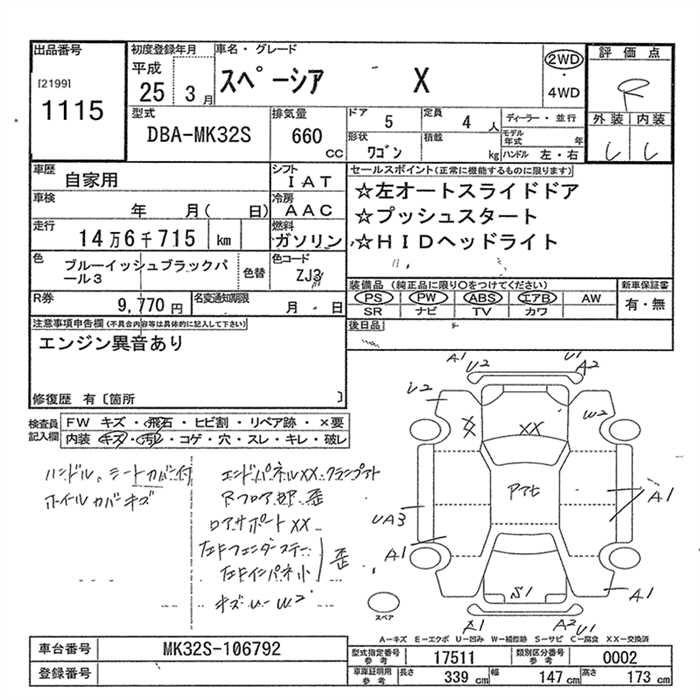 出品番号
[2199]
1115
初度登録年月
平成
25 3月
車名・グレード
スペーシア X
2WD
・
4WD
評価点
R
外装 内装
型式
DBA-MK32S
排気量
660
cc
ドア
5
定員
4 人
形状
ワゴン
積載
kg
ディーラー・並行
モデル年式 年
ハンドル 左・右
車歴
自家用
シフト
IAT
車検
年 月( 日)
冷房
AAC
走行
14万6千715 km
燃料
ガソリン
色
ブルーイッシュブラックパール3
色替
色コード
ZJ3
R券
9,770円
名変通知期限
月 日
セールスポイント(正常に機能するものに限ります)
☆左オートスライドドア
☆プッシュスタート
☆HIDヘッドライト
装備品 (純正品に限り〇をつけてください)
PS PW ABS エアB AW
SR ナビ TV カワ
新車保証書
有・無
後日品
注意事項申告欄(不具合内容等は具体的に記入して下さい)
エンジン異音あり
修復歴 有〔箇所 〕
検査員
記入欄
FW キズ・飛石・ヒビ割・リペア跡・×要
内装 キズ・汚レ・コゲ・穴・スレ・キレ・破レ
ハンドル、シートカバー付
ホイルカバキズ
エンドパネルXX、クランプアト
Rフロア部歪
ロアサポートXX
左右Fフェンダーステー
左右Fインパネ小
歪
キズ U W2
A1 U2 U1 A2
U2
W2
XX
XX
UA3
A1
A1
A1
S1
A1 A2 U1
スペア
A-キズ E-エクボ U-凹み W-補修跡 S-サビ C-腐食 XX-交換済
車台番号
MK32S-106792
登録番号
型式指定番号
参考
17511
類別区分番号
参考
0002
車庫証明用
参考
長さ 339 cm 幅 147 cm 高さ 173 cm